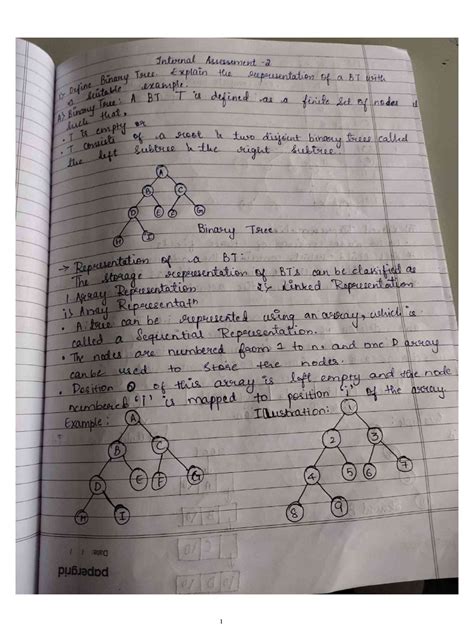 Internal Assessment-2
1) Define Binary Tree. Explain the representation of a BT with
a suitable example.
A) Binary Tree: A BT T is defined as a finite set of nodes
such that
• T is empty or
• T consists of a root & two disjoint binary trees called
the left subtree & the right subtree.
A
B C
D E F G
H I
Binary Tree
→ Representation of a BT:
The storage representation of BTs can be classified as
1. Array Representation 2. Linked Representation
i) Array Representatn
• A tree can be represented using an array, which is
called a Sequential Representation.
• The nodes are numbered from 1 to n, and one D array
can be used to store the nodes.
• Position 0 of this array is left empty and the node
numbered 'i' is mapped to position 'i' of the array.
Example: Illustration:
A 1
B C 2 3
D E F G 4 5 6 7
H I 8 9
Date: / /
papergrid
1